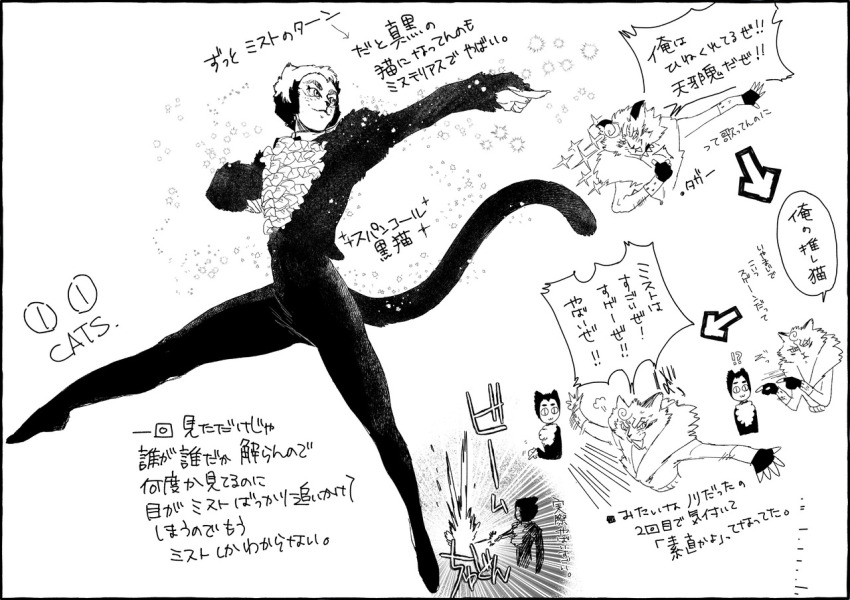 ずっと ミストのターン
だと真黒の
猫になってんのも
ミステリアスで やばい。
スパンコール
黒猫
CATS.
一回 見ただけじゃ
誰が誰だか 解らんので
何度か見てるのに
目が ミスト ばっかり 追いかけて
しまうのでもう
ミスト しかわからない。
俺は
ひねくれてるぜ!!
天邪鬼だぜ!!
って歌ってんのに
・タガー
俺の推し猫
!?
ミストは
すごいぜ!
すげーぜ!!
やばいぜ!!
みたいな ノリだったの
2回目で気付いて
「素直かよ」ってなってた。
ビーム
ちゅどん